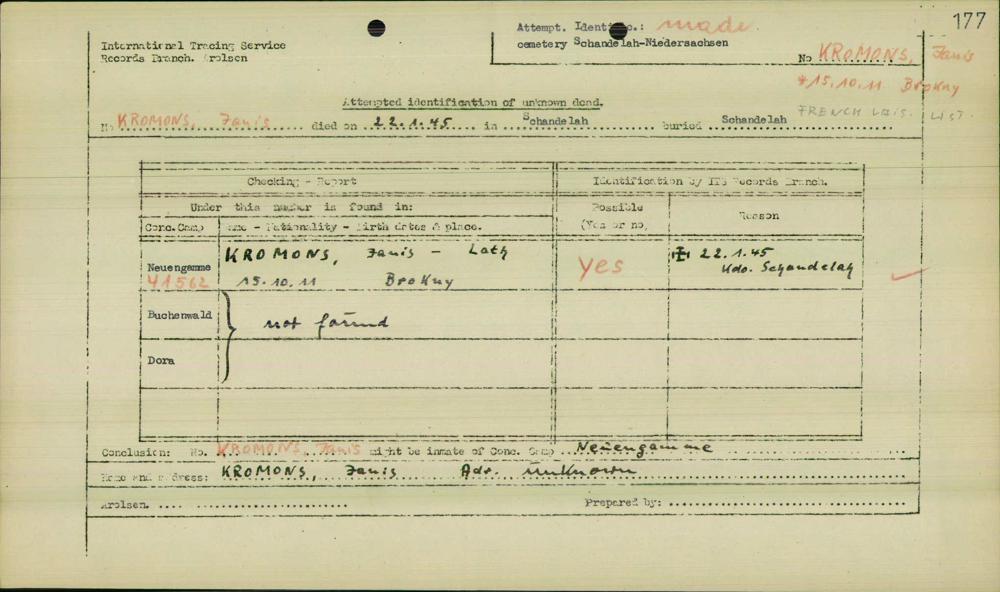 177
Attempt. Identific.: made.
cemetery Schandelah-Niedersachsen
International Tracing Service
Records Branch. Arolsen
No KROMONS, Janis
*15.10.11 Brokny
FRENCH LAIS. LIST.
Attempted identification of unknown dead.
No KROMONS, Janis died on 22.1.45 in Schandelah buried Schandelah
Checking - Report
Identification by ITS Records Branch.
Under this number is found in:
Possible
(Yes or no,
Reason
Conc.Camp
Name - Nationality - Birth dates & place.
Neuengamme
41562
KROMONS, Janis - Lath
15.10.11 Brokny
yes
22.1.45
Kdo. Schandelah
Buchenwald
not found
Dora
Conclusion: No. KROMONS, Janis might be inmate of Conc. Camp Neuengamme
Name and address: KROMONS, Janis Adr. unknown
Arolsen.
Prepared by: